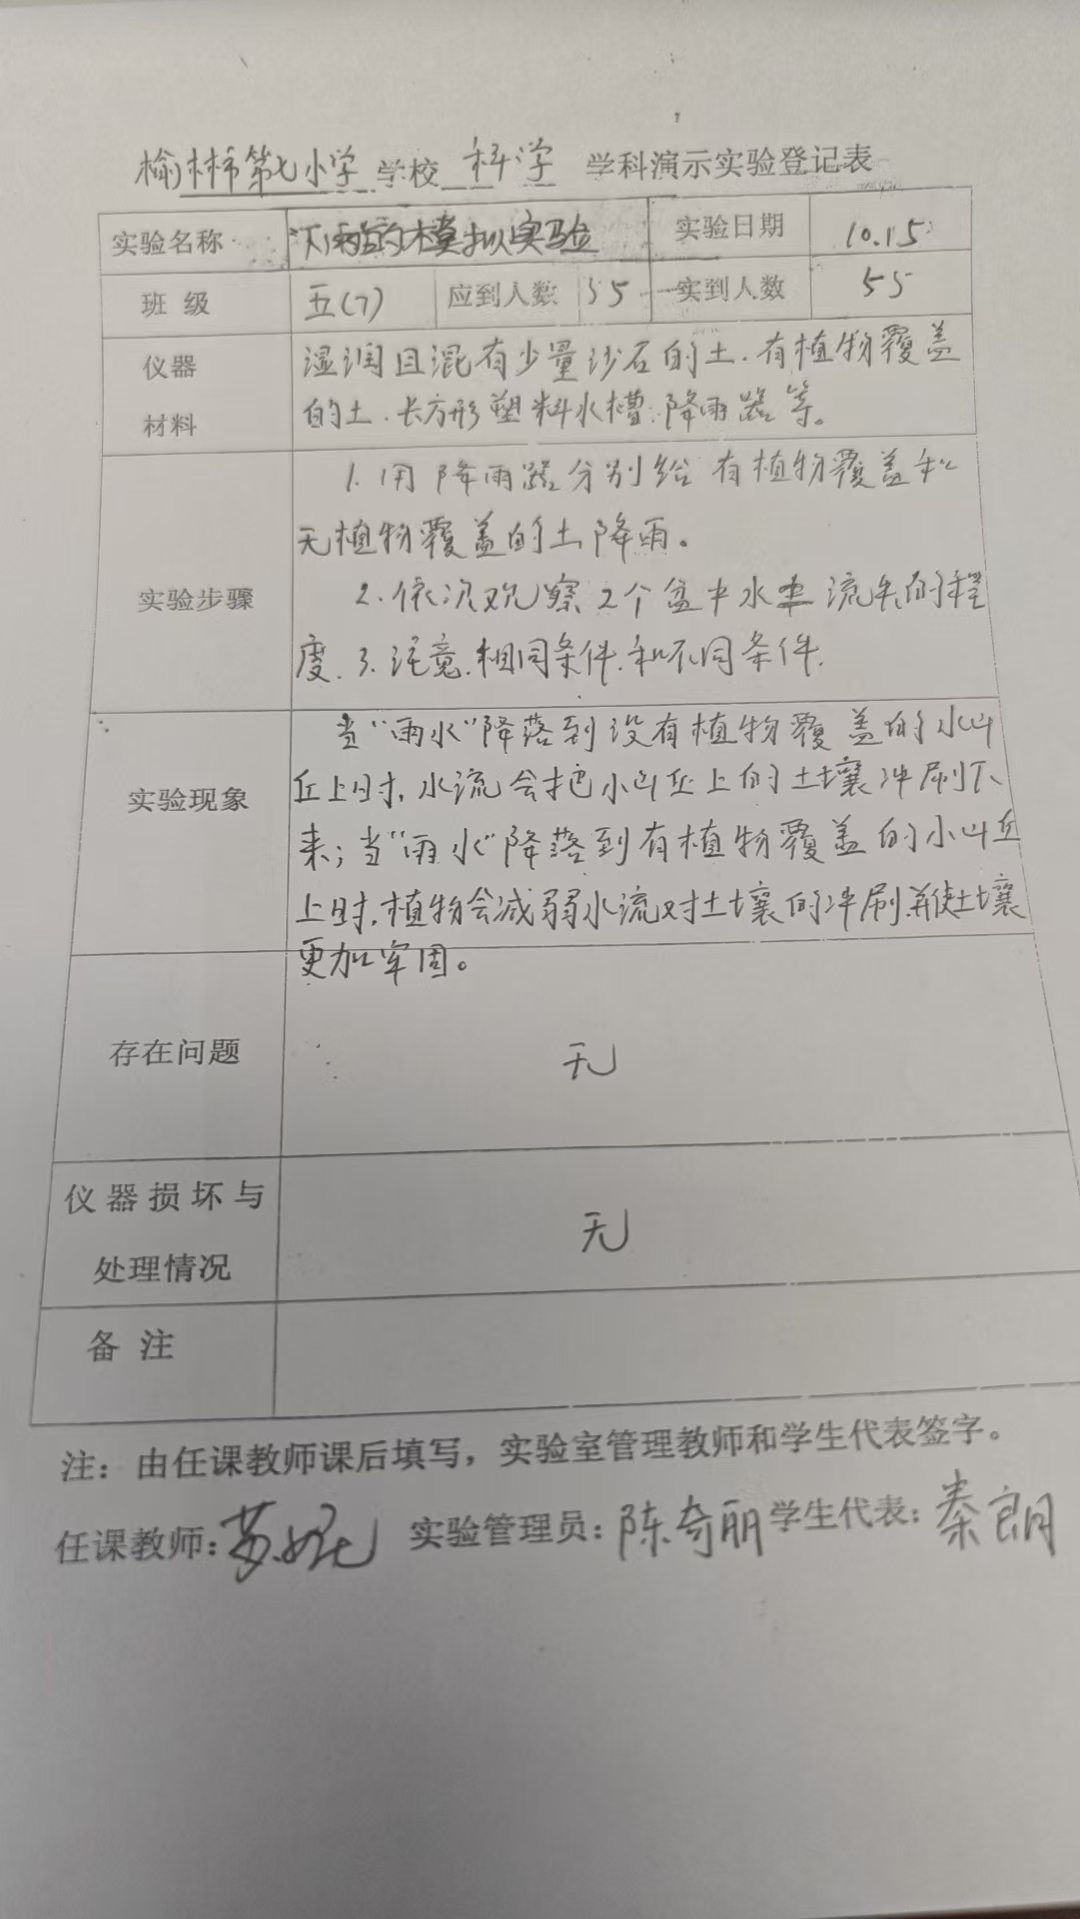 榆林市第七小学 学校 科学 学科演示实验登记表
实验名称 下雨的模拟实验 实验日期 10.15
班 级 五(7) 应到人数 55 实到人数 55
仪器 湿润且混有少量沙石的土.有植物覆盖
材料 的土.长方形塑料水槽.降雨器等。
1.用降雨器分别给有植物覆盖和
无植物覆盖的土降雨。
实验步骤 2.依次观察2个盆中水土流失的程
度.3.注意.相同条件.和不同条件.
当“雨水”降落到没有植物覆盖的小山
丘上时,水流会把小山丘上的土壤冲刷下
实验现象
来;当“雨水”降落到有植物覆盖的小山丘
上时,植物会减弱水流对土壤的冲刷,并使土壤
更加牢固。
存在问题 无
仪器损坏与
无
处理情况
备 注
注：由任课教师课后填写，实验室管理教师和学生代表签字。
任课教师: 实验管理员: 陈奇丽 学生代表: 秦朗